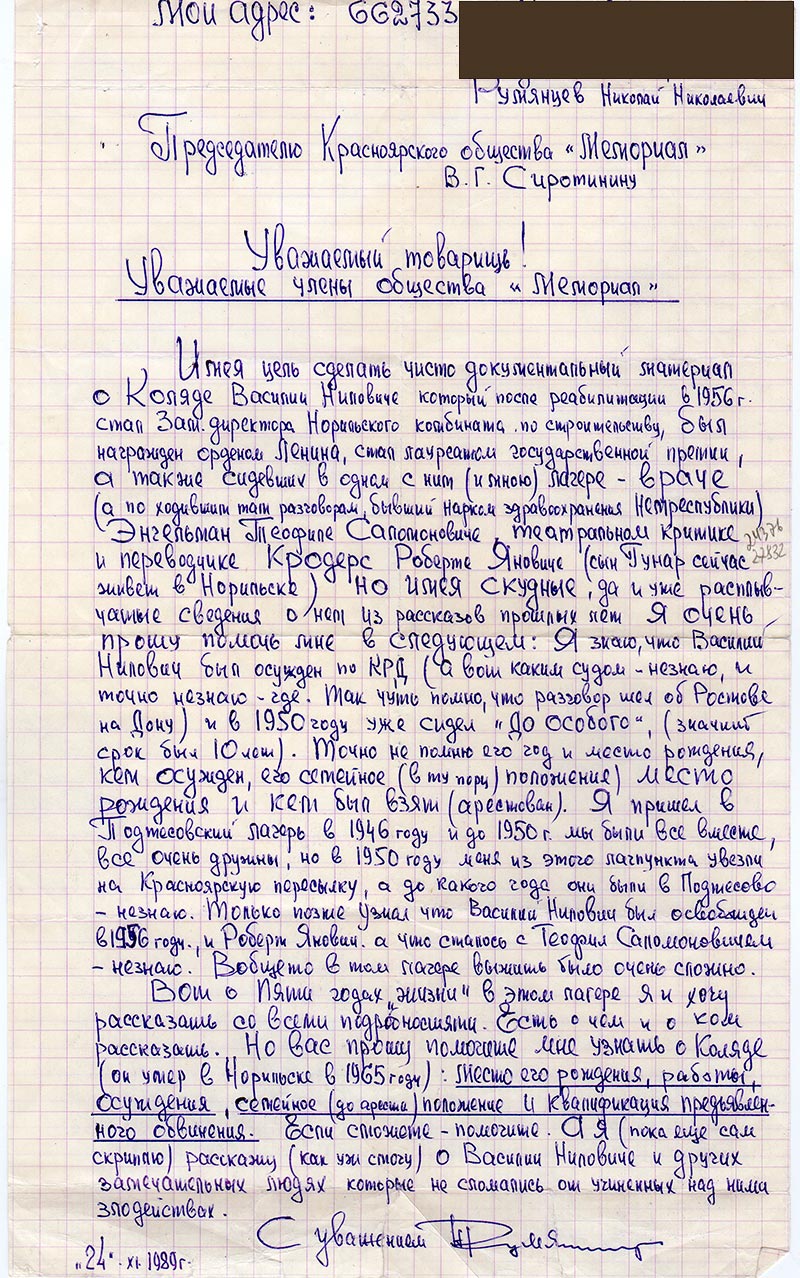 Мой адрес: 662733
Румянцев Николай Николаевич
Председателю Красноярского общества «Мемориал»
В.Г. Сиротинину
Уважаемый товарищь!
Уважаемые члены общества «Мемориал»
Имея цель сделать чисто документальный материал
о Коляде Василии Ниловиче который после реабилитации в 1956 г.
стал Зам. директора Норильского комбината по строительству, был
награжден орденом Ленина, стал лауреатом государственной премии,
а также сидевших в одном с ним (и мною) лагере – враче
(а по ходившим там разговорам, бывший нарком здравоохранения Немреспублики)
Энгельман Теофиле Саломоновиче, театральном критике
и переводчике Кродерс Роберте Яновиче (сын Гунар сейчас
живет в Норильске) но имея скудные, да и уже расплыв-
чатые сведения о нем из рассказов прошлых лет Я очень
прошу помочь мне в следующем: Я знаю, что Василий
Нилович был осужден по КРД (а вот каким судом – незнаю, и
точно незнаю – где. Так чуть помню, что разговор шел об Ростове
на Дону) и в 1950 году уже сидел „До особого“, (значит
срок был 10 лет). Точно не помню его год и место рождения,
кем осужден, его семейное (в ту пору) положение) место
рождения и кем был взят (арестован). Я пришел в
Подтесовский лагерь в 1946 году и до 1950 г. мы были все вместе,
все очень дружны, но в 1950 году меня из этого лагпункта увезли
на Красноярскую пересылку, а до какого года они были в Подтесово
– незнаю. Только позже узнал что Василий Нилович был освобожден
в 1956 году, и Роберт Янович. а что сталось с Теофил Саломоновичем
– незнаю. Вобщето в том лагере выжить было очень сложно.
Вот о пяти годах „жизни“ в этом лагере я и хочу
рассказать со всеми подробностями. Есть о чем и о ком
рассказать. Но вас прошу помогите мне узнать о Коляде
(он умер в Норильске в 1965 году): место его рождения, работы,
осуждения, семейное (до ареста) положение и квалификация предъявлен-
ного обвинения. Если сможете – помогите. А я (пока еще сам
скриплю) расскажу (как уж смогу) о Василии Ниловиче и других
замечательных людях которые не сломались от учиненных над ними
злодействах.
С уважением
„24“ XI. 1989 г.